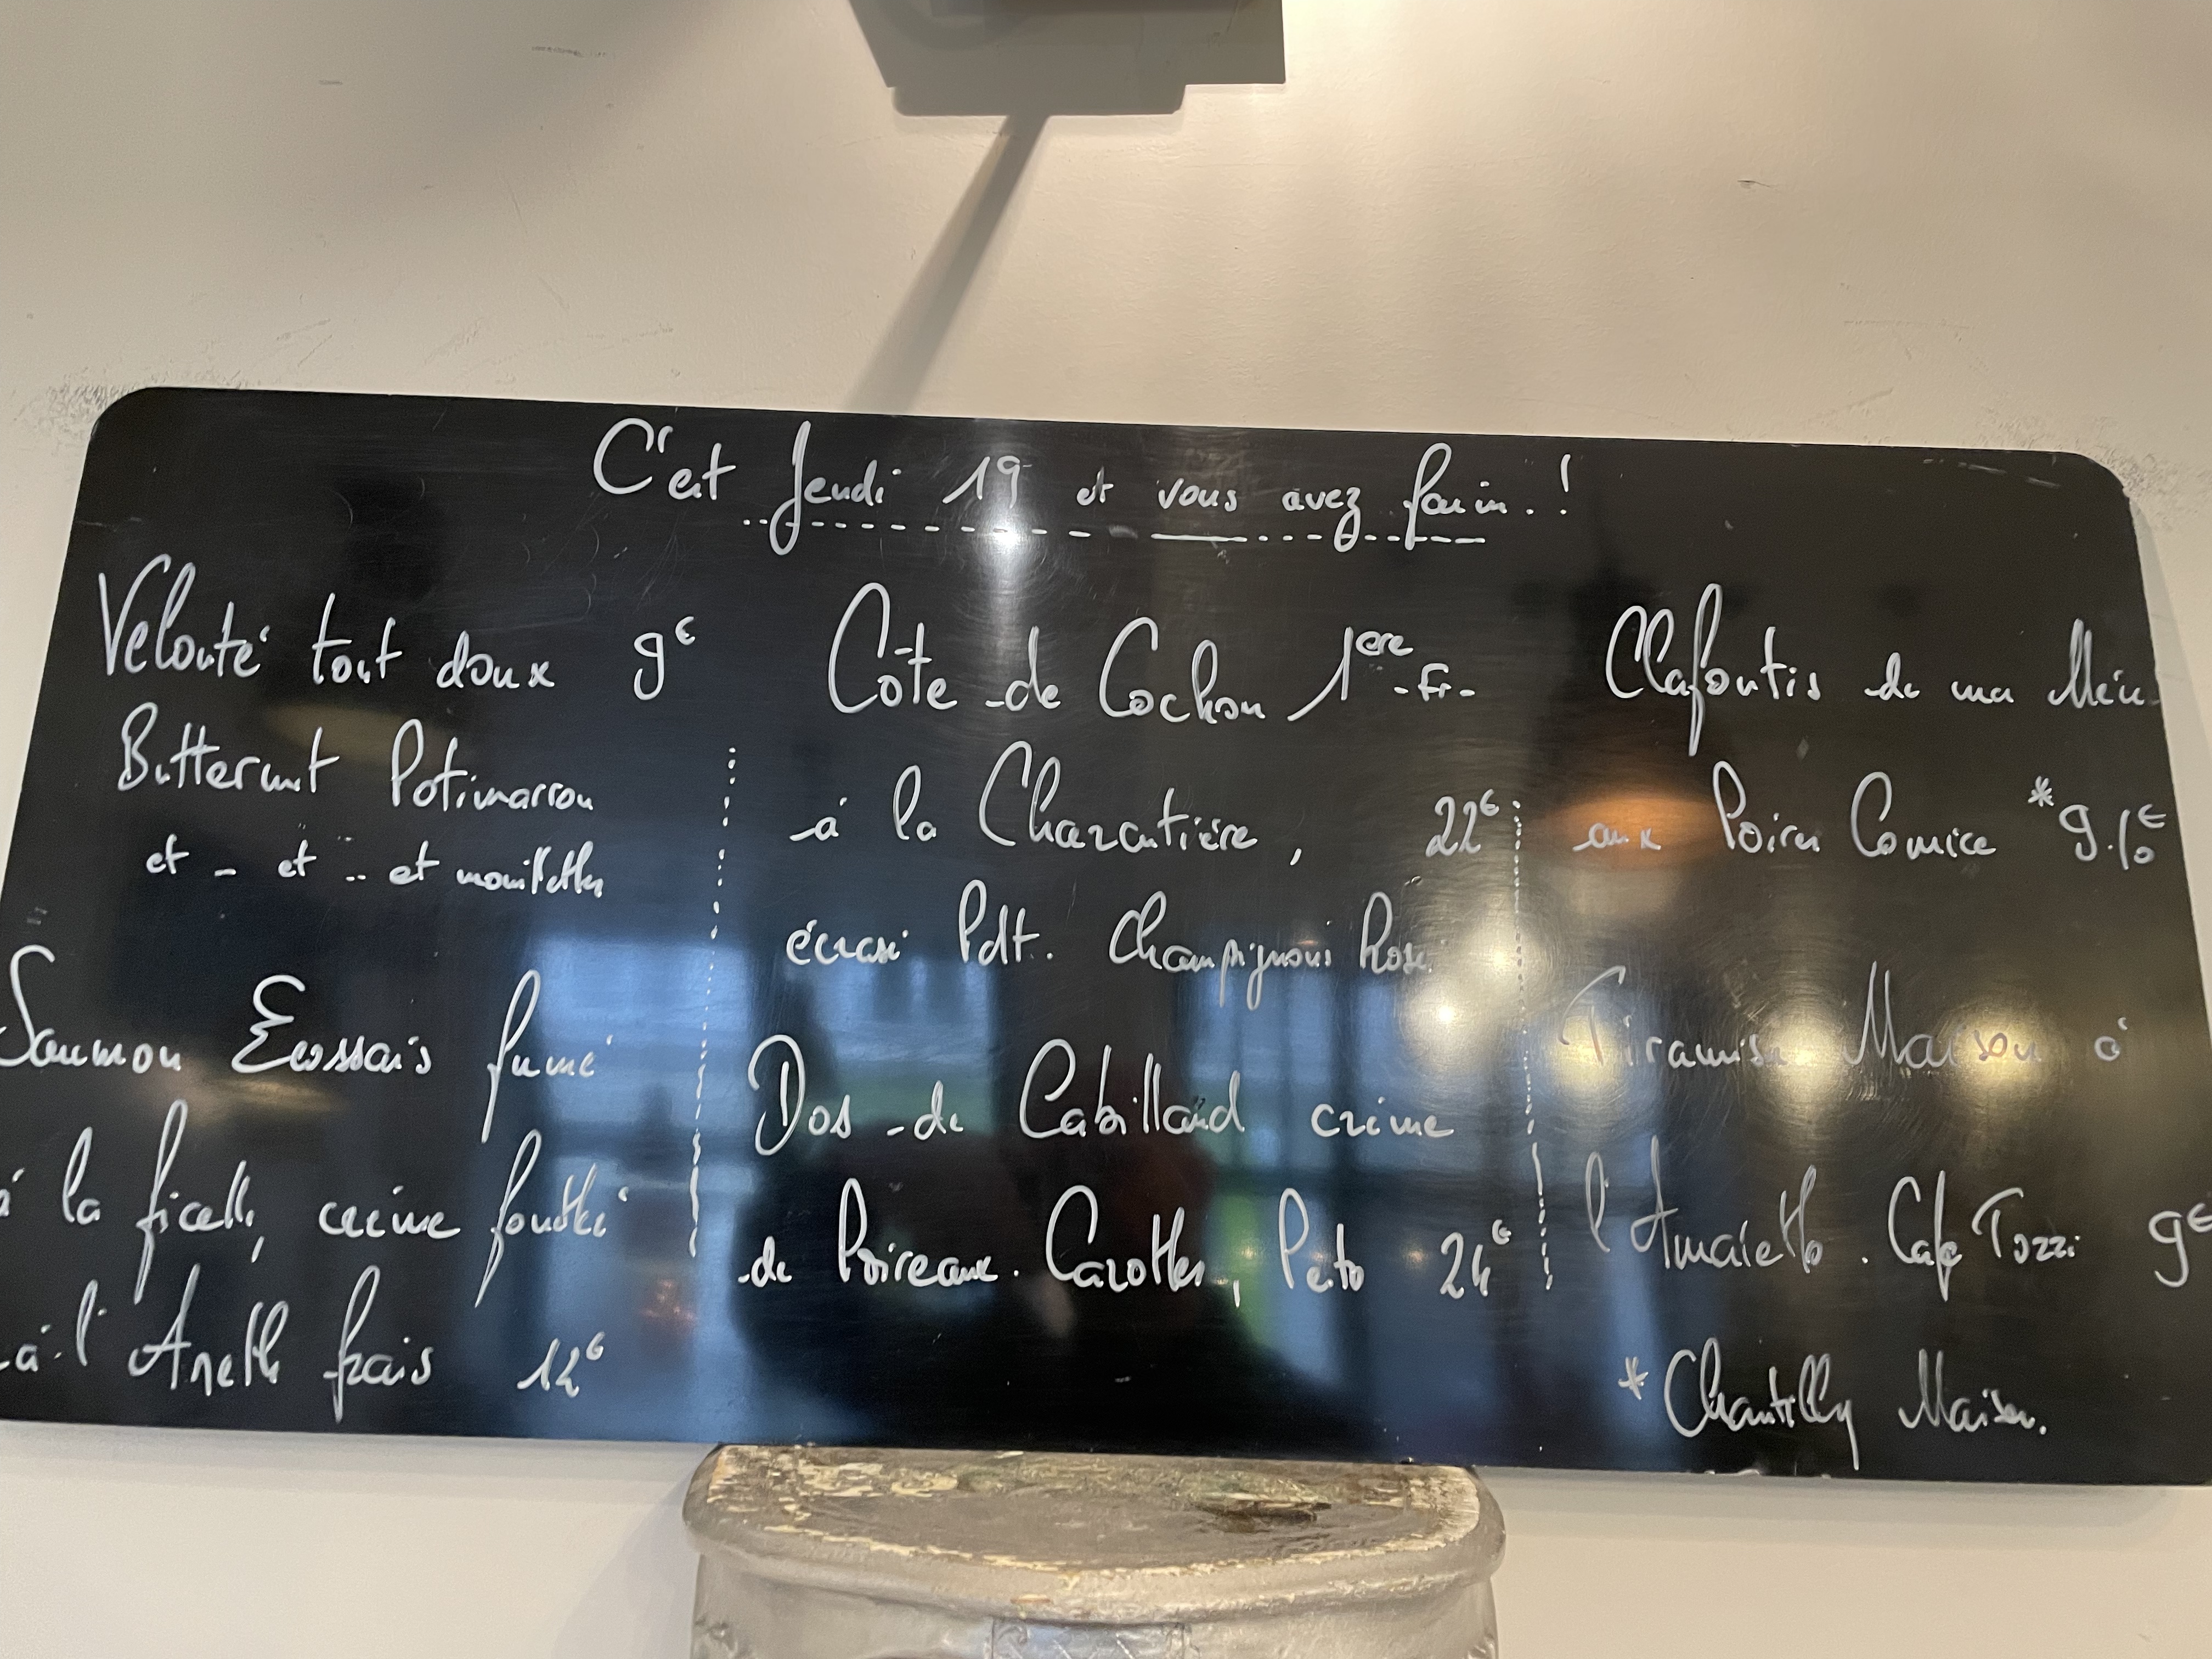 C'est Jeudi 19 et vous avez faim.!
Velouté tout doux 9€
Butternut Potimarron
et - et .. et mouillettes
Saumon Ecossais fumé
à la ficelle, crème fouettée
à l'Aneth frais 12€
Côte de Cochon 1ère -Fr-
à la Charcutière, 22€
écrasé Pdt. Champignons Rosé
Dos de Cabillaud crème
de Poireaux. Carottes, Pesto 24€
Clafoutis de ma Mère
aux Poires Comice *9.€
Tiramisu Maison à
l'Amaretto. Café Tozzi 9€
*Chantilly Maison.